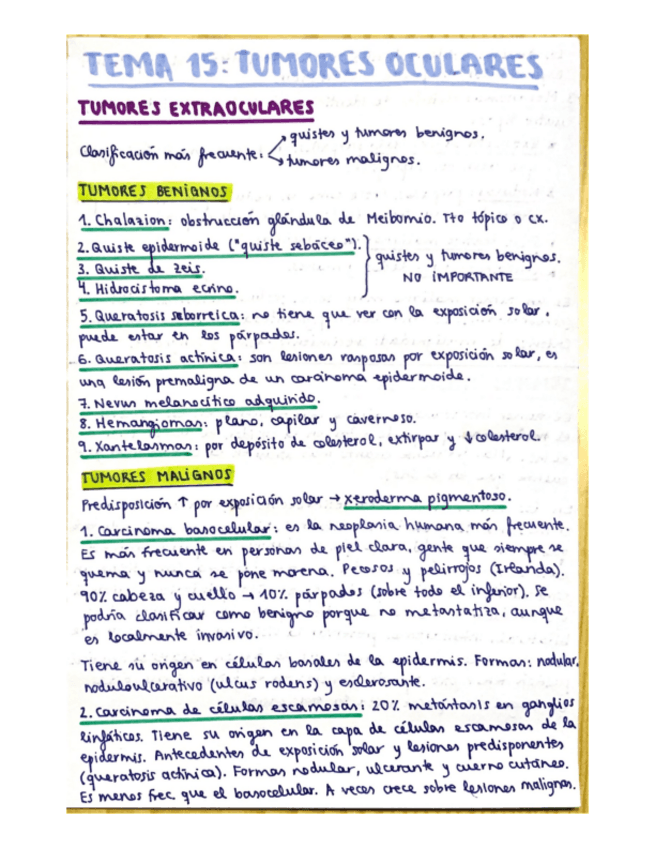 TEMA 15: TUMORES OCULARES
TUMORES EXTRAOCULARES
Clasificación más frecuente:
quistes y tumores benignos.
tumores malignos.
TUMORES BENIGNOS
1. Chalazion: obstrucción glándula de Meibomio. Tto tópico o cx.
2. Quiste epidermoide ("quiste sebáceo").
3. Quiste de Zeis.
4. Hidrocistoma ecrino.
quistes y tumores benignos.
NO IMPORTANTE
5. Queratosis seborreica: no tiene que ver con la exposición solar,
puede estar en los párpados.
6. Queratosis actínica: son lesiones rasposas por exposición solar, es
una lesión premaligna de un carcinoma epidermoide.
7. Nevus melanocítico adquirido.
8. Hemangiomas: plano, capilar y cavernoso.
9. Xantelasmas: por depósito de colesterol, extirpar y ↓ colesterol.
TUMORES MALIGNOS
Predisposición ↑ por exposición solar → xeroderma pigmentoso.
1. Carcinoma basocelular: es la neoplasia humana más frecuente.
Es más frecuente en personas de piel clara, gente que siempre se
quema y nunca se pone morena. Pecosos y pelirrojos (Irlanda).
90% cabeza y cuello → 10% párpados (sobre todo el inferior). Se
podría clasificar como benigno porque no metastatiza, aunque
es localmente invasivo.
Tiene su origen en células basales de la epidermis. Formas: nodular,
noduloulcerativo (ulcus rodens) y esclerosante.
2. Carcinoma de células escamosas: 20% metástasis en ganglios
linfáticos. Tiene su origen en la capa de células escamosas de la
epidermis. Antecedentes de exposición solar y lesiones predisponentes
(queratosis actínica). Formas nodular, ulcerante y cuerno cutáneo.
Es menos frec que el basocelular. A veces crece sobre lesiones malignas.